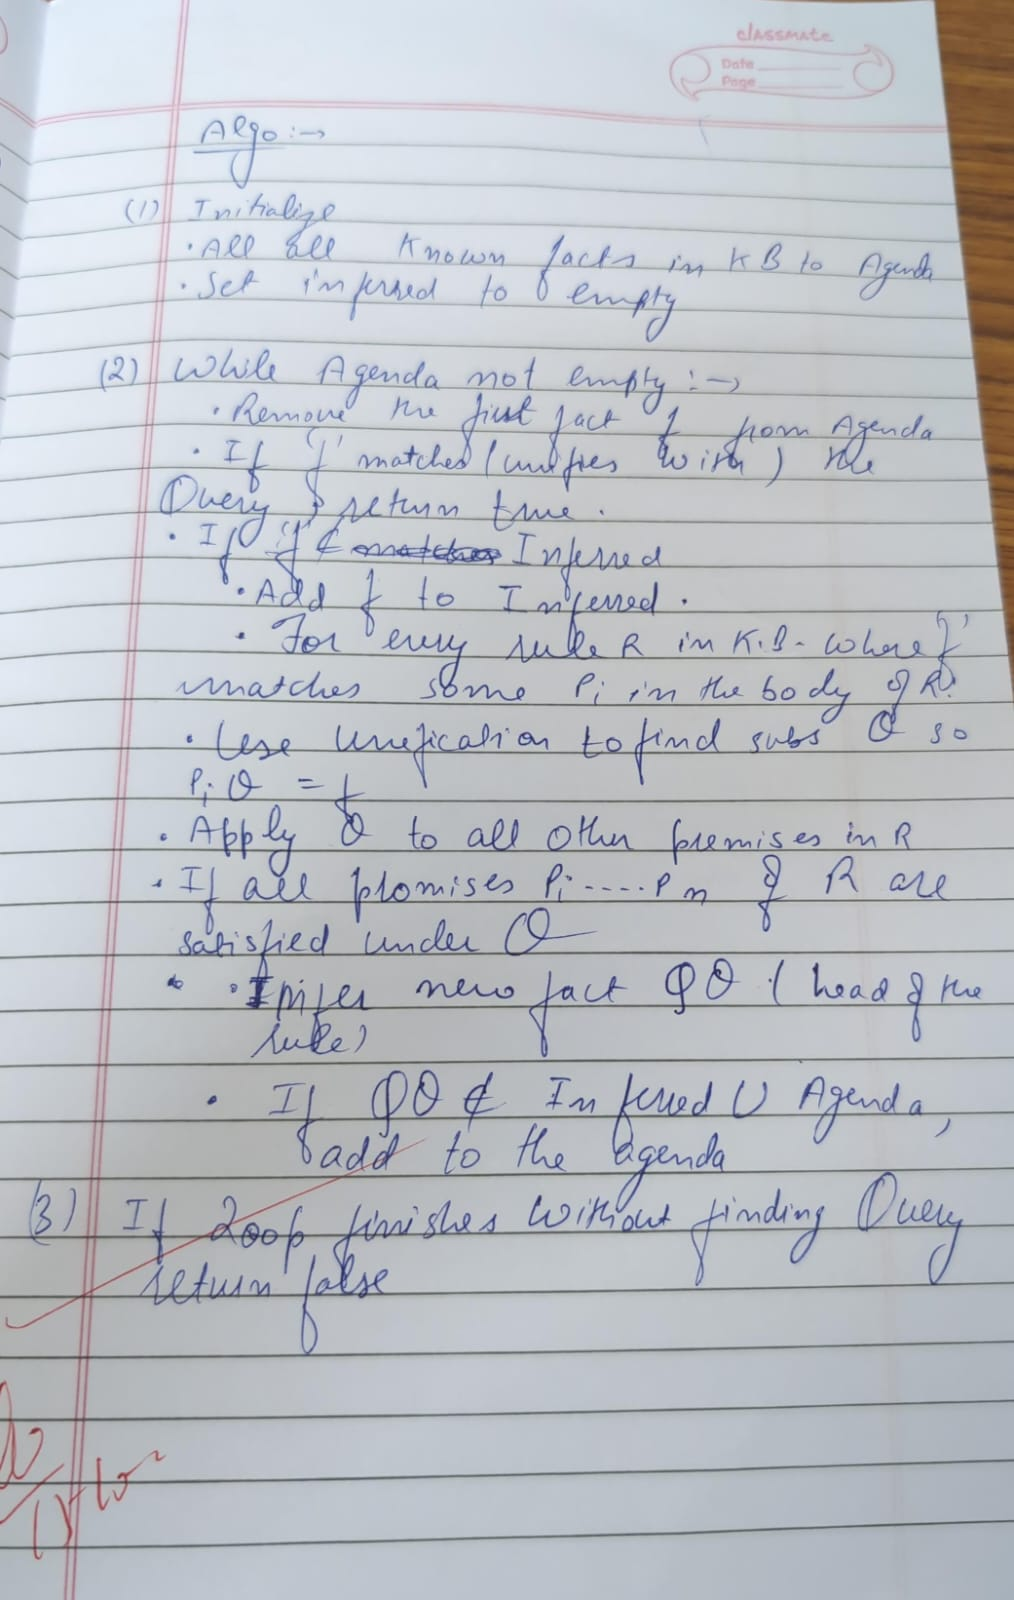 classmate
Date
Page
Algo :→
(1) Initialize
· All all known facts in KB to Agenda
· Set inferred to empty
(2) While Agenda not empty :→
· Remove the first fact f from Agenda
· If 'f' matches (unifies with) the
Query, return true.
· If 'f' ∉ Inferred
· Add f to Inferred.
· For every rule R in K.B. where 'f'
matches some Pi in the body of R:
· Use unification to find subs θ so
Pi θ = f
· Apply θ to all other premises in R
· If all promises Pi.....Pn of R are
satisfied under θ
· Infer new fact Qθ (head of the
rule)
· If Qθ ∉ Inferred U Agenda,
add to the agenda
(3) If Loop finishes without finding Query
return false